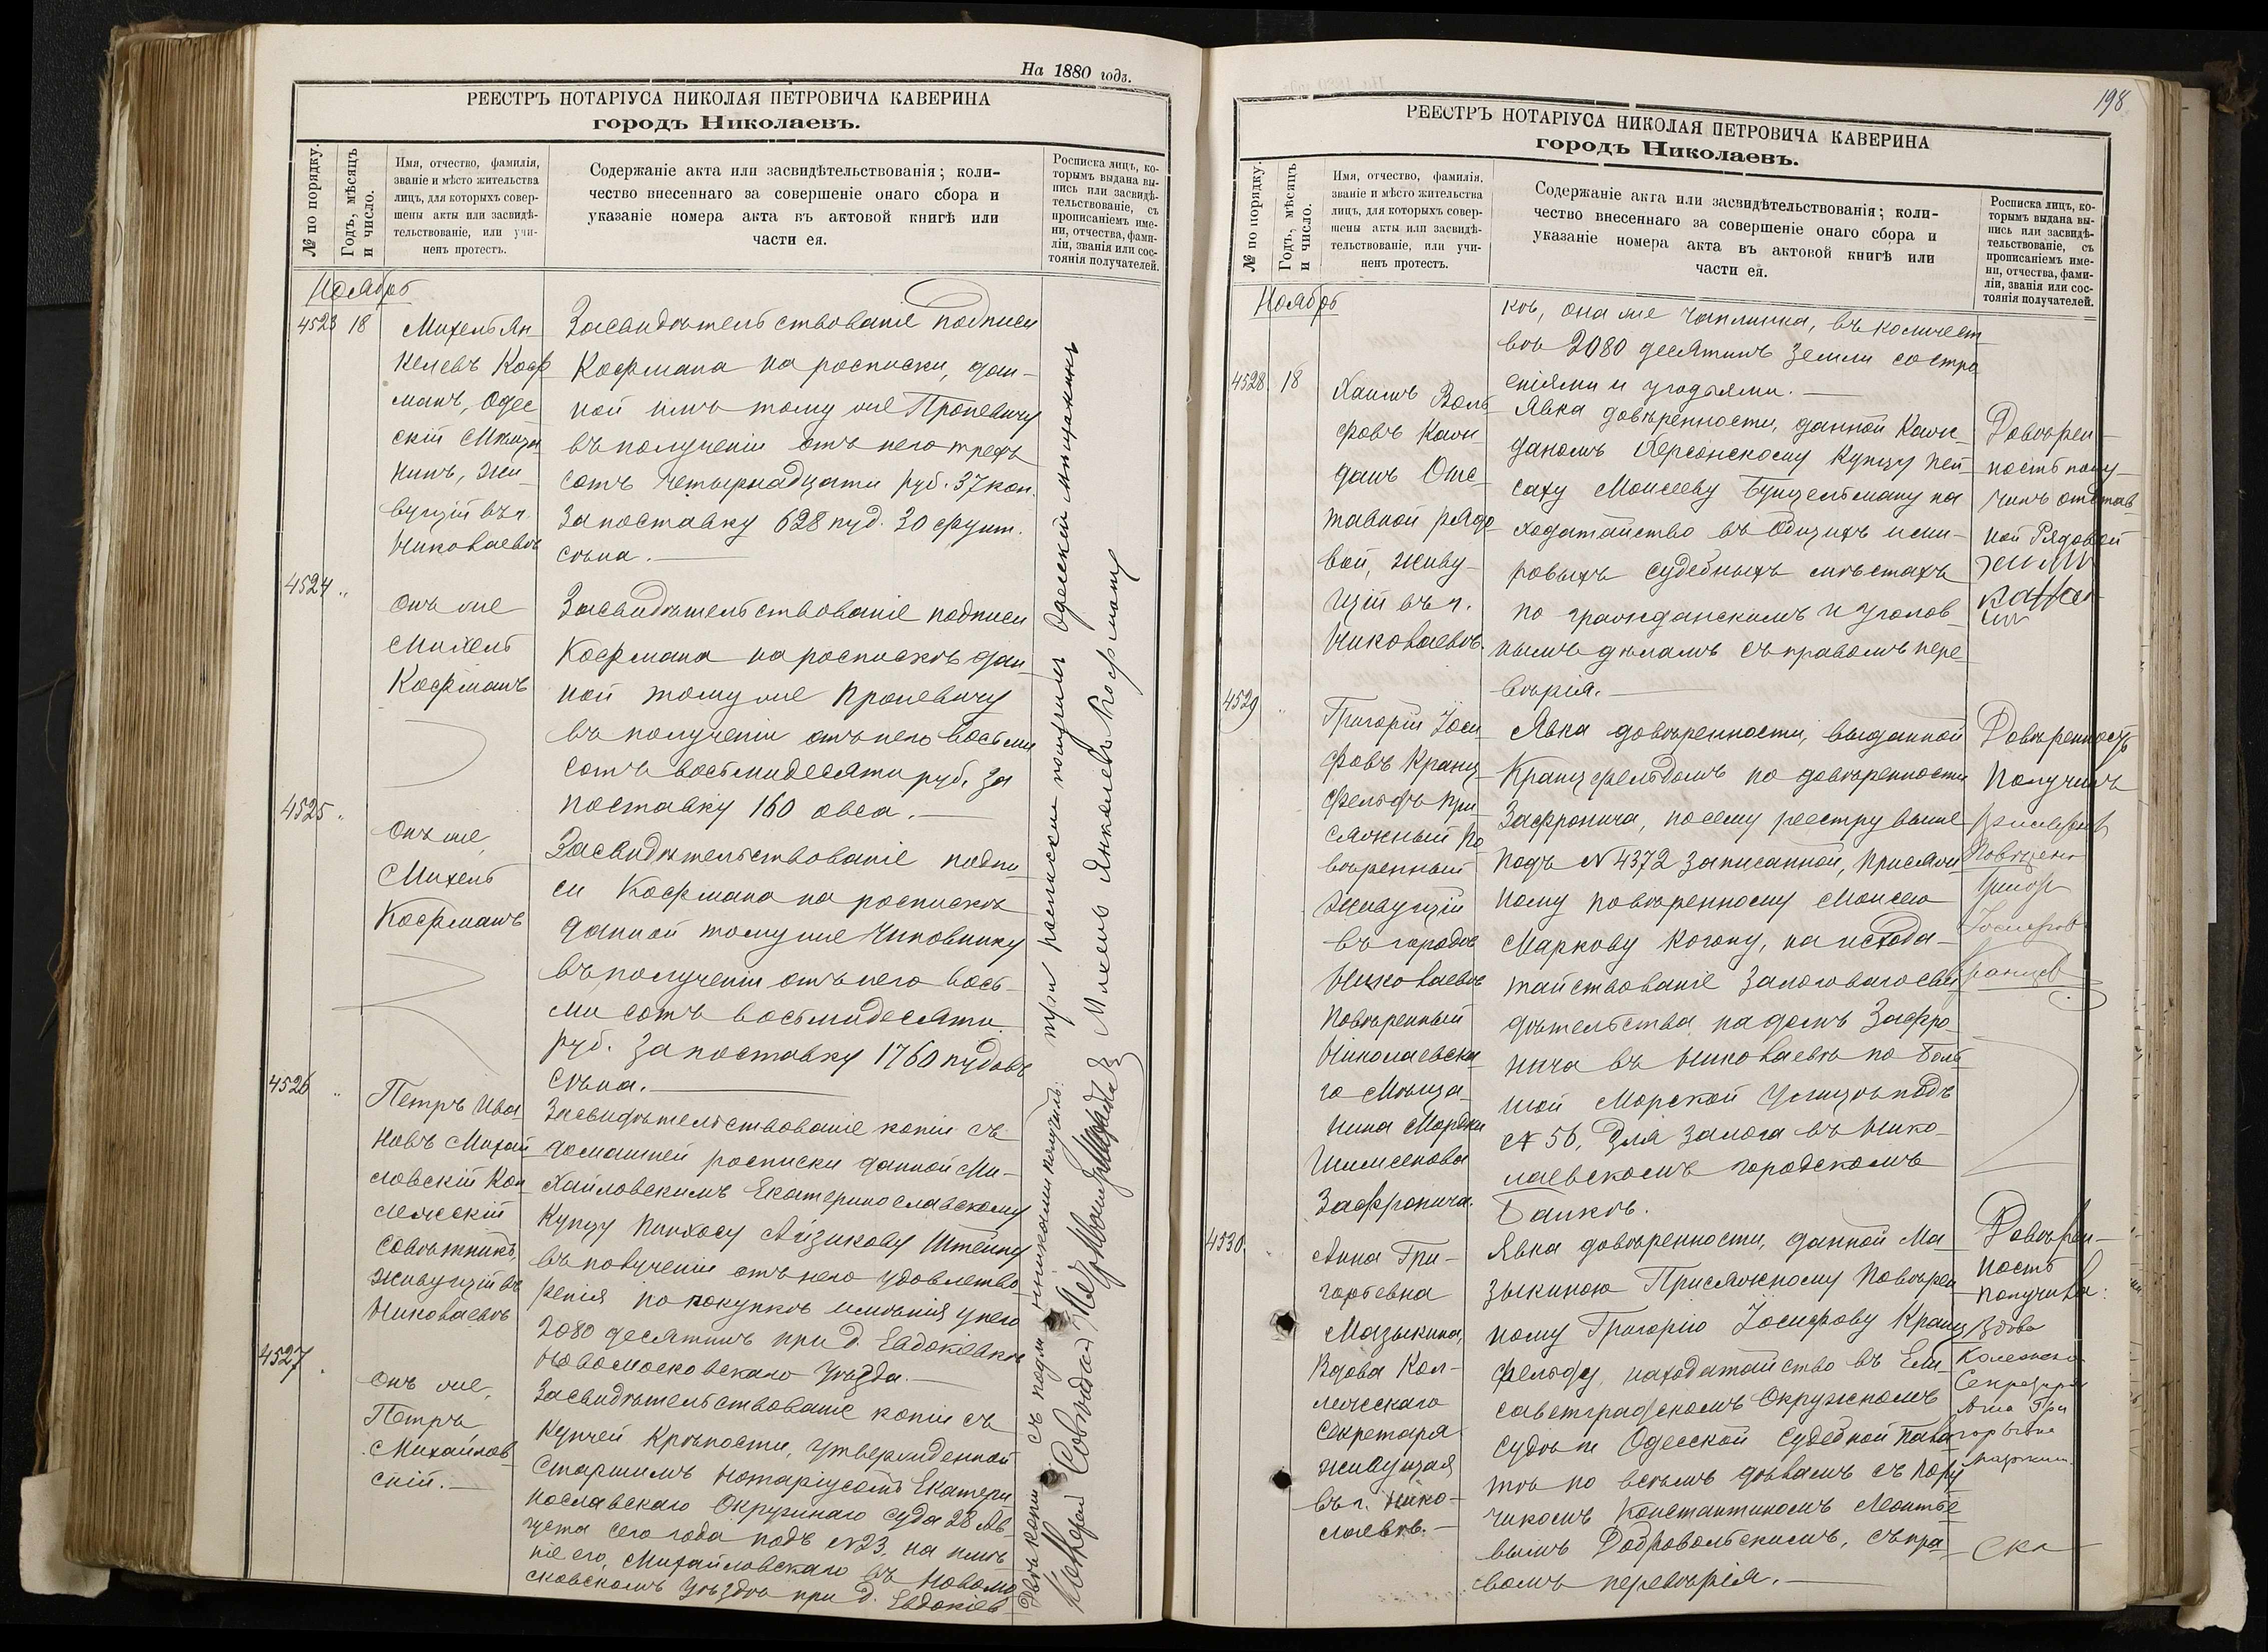 На 1880 годъ.
РЕЕСТРЪ НОТАРІУСА НИКОЛАЯ ПЕТРОВИЧА КАВЕРИНА
городъ Николаевъ.
№ по порядку.
Годъ, мѣсяцъ
и число.
Имя, отчество, фамилія,
званіе и мѣсто жительства
лицъ, для которыхъ совер-
шены акты или засвидѣ-
тельствованіе, или учи-
ненъ протестъ.
Содержаніе акта или засвидѣтельствованія; коли-
чество внесеннаго за совершеніе онаго сбора и
указаніе номера акта въ актовой книгѣ или
части ея.
Росписка лицъ, ко-
торымъ выдана вы-
пись или засвидѣ-
тельствованіе, съ
прописаніемъ име-
ни, отчества, фами-
ліи, званія или сос-
тоянія получателей.
Ноябрь
4523 18
Михель Ян
келевъ Коф
манъ, Одес
скій Мѣща
нинъ, жи-
вущій въ г.
Николаевѣ
Засвидѣтельствованіе подписи
Кофмана на росписки, дан-
ной имъ тому же Пропевичу
въ полученіи отъ него трехъ
сотъ четырнадцати руб. 37 коп.
за поставку 628 пуд. 30 фунт.
сѣна.
4524 "
Онъ же
Михель
Кофманъ
Засвидѣтельствованіе подписи
Кофмана на роспискѣ дан-
ной тому же Пропевичу
въ полученіи отъ него восьми
сотъ восьмидесяти руб. за
поставку 160 овса.
4525 "
Онъ же,
Михель
Кофманъ
Засвидѣтельствованіе подпи
си Кофмана на роспискѣ
данной тому же Чиновнику
въ полученіи отъ него вось-
ми сотъ восьмидесяти
руб. за поставку 1760 пудовъ
сѣна.
4526 "
Петръ Ива
новъ Михай
ловскій Кол
лежскій
Совѣтникъ,
живущій въ
Николаевѣ
Засвидѣтельствованіе копіи съ
домашней росписки данной Ми-
хайловскимъ Екатеринославскому
Купцу Пинхосу Айзикову Штейну
въ полученіи отъ него удовлетво
ренія по покупкѣ имѣнія у него
2080 десятинъ при д. Евдокіевкѣ
Новомосковскаго уѣзда.
4527 "
Онъ же,
Петръ
Михайлов
скій.
Засвидѣтельствованіе копіи съ
Купчей Крѣпости, утвержденной
Старшимъ Нотаріусомъ Екатери
нославскаго Окружнаго Суда 28 Ав-
густа сего года подъ №23, на имѣ
ніе его, Михайловскаго въ Новомо
сковскомъ уѣздѣ при д. Евдокіев
три росписки получилъ Одесскій мѣщанинъ
Михель Янкелевъ Кофманъ
Двѣ копіи съ подлинниками получилъ:
198
РЕЕСТРЪ НОТАРІУСА НИКОЛАЯ ПЕТРОВИЧА КАВЕРИНА
городъ Николаевъ.
№ по порядку.
Годъ, мѣсяцъ
и число.
Имя, отчество, фамилія,
званіе и мѣсто жительства
лицъ, для которыхъ совер-
шены акты или засвидѣ-
тельствованіе, или учи-
ненъ протестъ.
Содержаніе акта или засвидѣтельствованія; коли-
чество внесеннаго за совершеніе онаго сбора и
указаніе номера акта въ актовой книгѣ или
части ея.
Росписка лицъ, ко-
торымъ выдана вы-
пись или засвидѣ-
тельствованіе, съ
прописаніемъ име-
ни, отчества, фами-
ліи, званія или сос-
тоянія получателей.
Ноябрь
кѣ, она же Чаплинка, въ количест
вѣ 2080 десятинъ земли со стро
еніями и угодьями.
4528 18
Хаимъ Воль
фовъ Каон-
данъ Отс-
тавной рядо
вой, живу-
щій въ г.
Николаевѣ.
Явка довѣренности, данной Каон-
даномъ Херсонскому Купцу Пей
саху Моисееву Бунцельману на
ходатайство въ Общихъ и ми-
ровыхъ судебныхъ мѣстахъ
по гражданскимъ и уголов
нымъ дѣламъ съ правомъ пере
вѣрія.
Довѣрен-
ность полу-
чилъ отстав
ной Рядовой
4529 "
Григорій Іоси-
фовъ Кранц
фельдъ При
сяжный По
вѣренный
живущій
въ городѣ
Николаевѣ
повѣренный
Николаевска
го Мѣща-
нина Мордки
Шимсенова
Зафронича.
Явка довѣренности, выданной
Кранцфельдомъ по довѣренности
Зафронича, по сему реестру выше
подъ №4372 записанной, Присяж
ному повѣренному Моисею
Маркову Когону, на исхода-
тайствованіе залоговаго сви
дѣтельства на домъ Зафро-
нича въ Николаевѣ по Боль
шой Морской Улицѣ подъ
№ 56, для залога въ Нико-
лаевскомъ городскомъ
Банкѣ.
Довѣренность
получилъ
4530
Анна Гри-
горьевна
Мазыкина,
Вдова Кол-
лежскаго
Секретаря
живущая
въ г. Нико-
лаевѣ.
Явка довѣренности, данной Ма
зыкиною Присяжному Повѣрен
ному Григорію Іосифову Кранц
фельду, на ходатайство въ Ели-
саветградскомъ Окружномъ
Судѣ и Одесской Судебной Пала
тѣ по всѣмъ дѣламъ съ пору
чикомъ Константиномъ Леонтье
вымъ Добровольскимъ, съ пра-
вомъ перевѣрія.
Довѣрен-
ность
получила:
Вдова